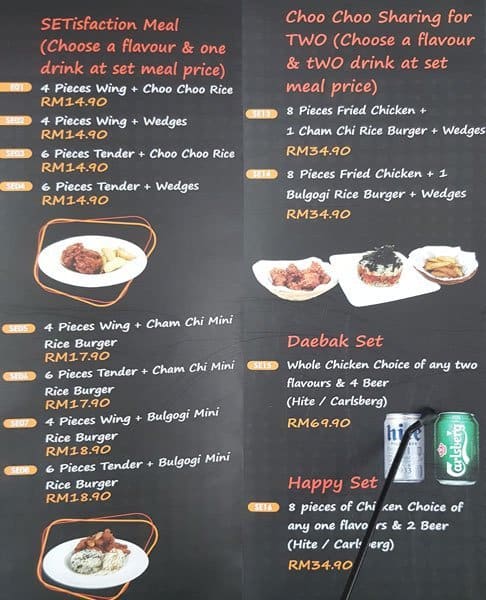 SETisfaction Meal
(Choose a flavour & one
drink at set meal price)
4 Pieces Wing + Choo Choo Rice
RM14.90
SE02 4 Pieces Wing + Wedges
RM14.90
SE03 6 Pieces Tender + Choo Choo Rice
RM14.90
SE04 6 Pieces Tender + Wedges
RM14.90
SE05 4 Pieces Wing + Cham Chi Mini
Rice Burger
RM17.90
SE06 6 Pieces Tender + Cham Chi Mini
Rice Burger
RM17.90
SE07 4 Pieces Wing + Bulgogi Mini
Rice Burger
RM18.90
SE08 6 Pieces Tender + Bulgogi Mini
Rice Burger
RM18.90
Choo Choo Sharing for
TWO (Choose a flavour
& tWO drink at set
meal price)
SE13 8 Pieces Fried Chicken +
1 Cham Chi Rice Burger + Wedges
RM34.90
SE14 8 Pieces Fried Chicken + 1
Bulgogi Rice Burger + Wedges
RM34.90
Daebak Set
SE15 Whole Chicken Choice of any two
flavours & 4 Beer
(Hite / Carlsberg)
RM69.90
hite
Carlsberg
Happy Set
SE16 8 pieces of Chicken Choice of
any one flavours & 2 Beer
(Hite / Carlsberg)
RM34.90